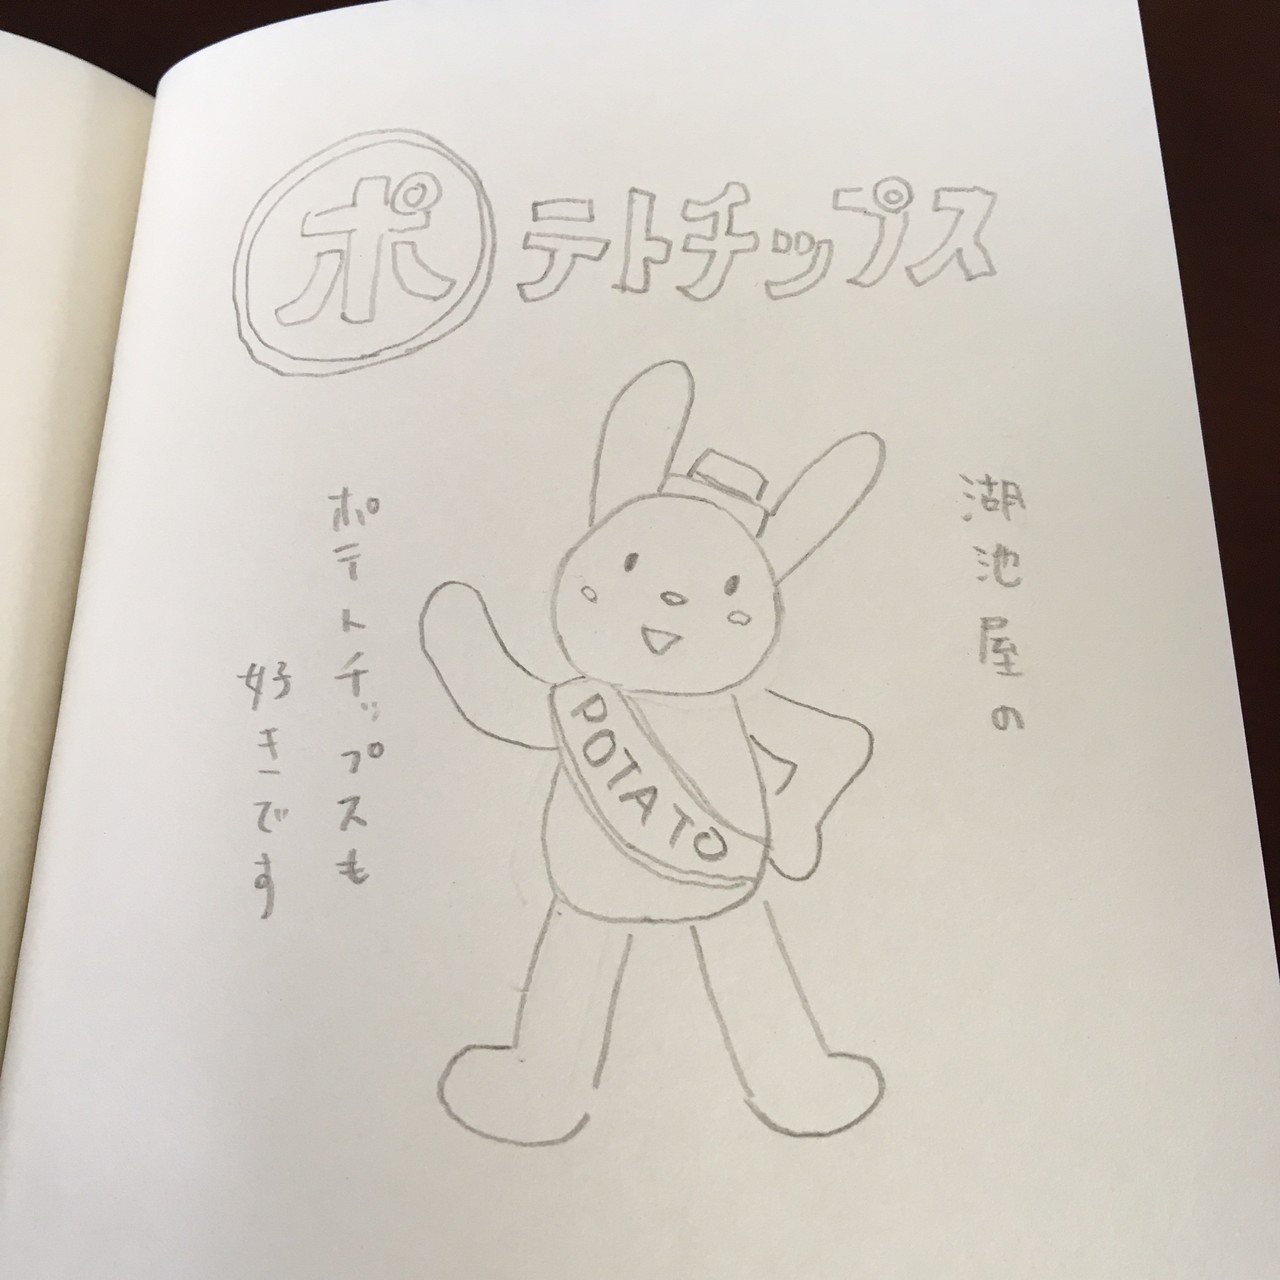 ポテトチップス
湖池屋の
ポテトチップスも
好きです
POTATO